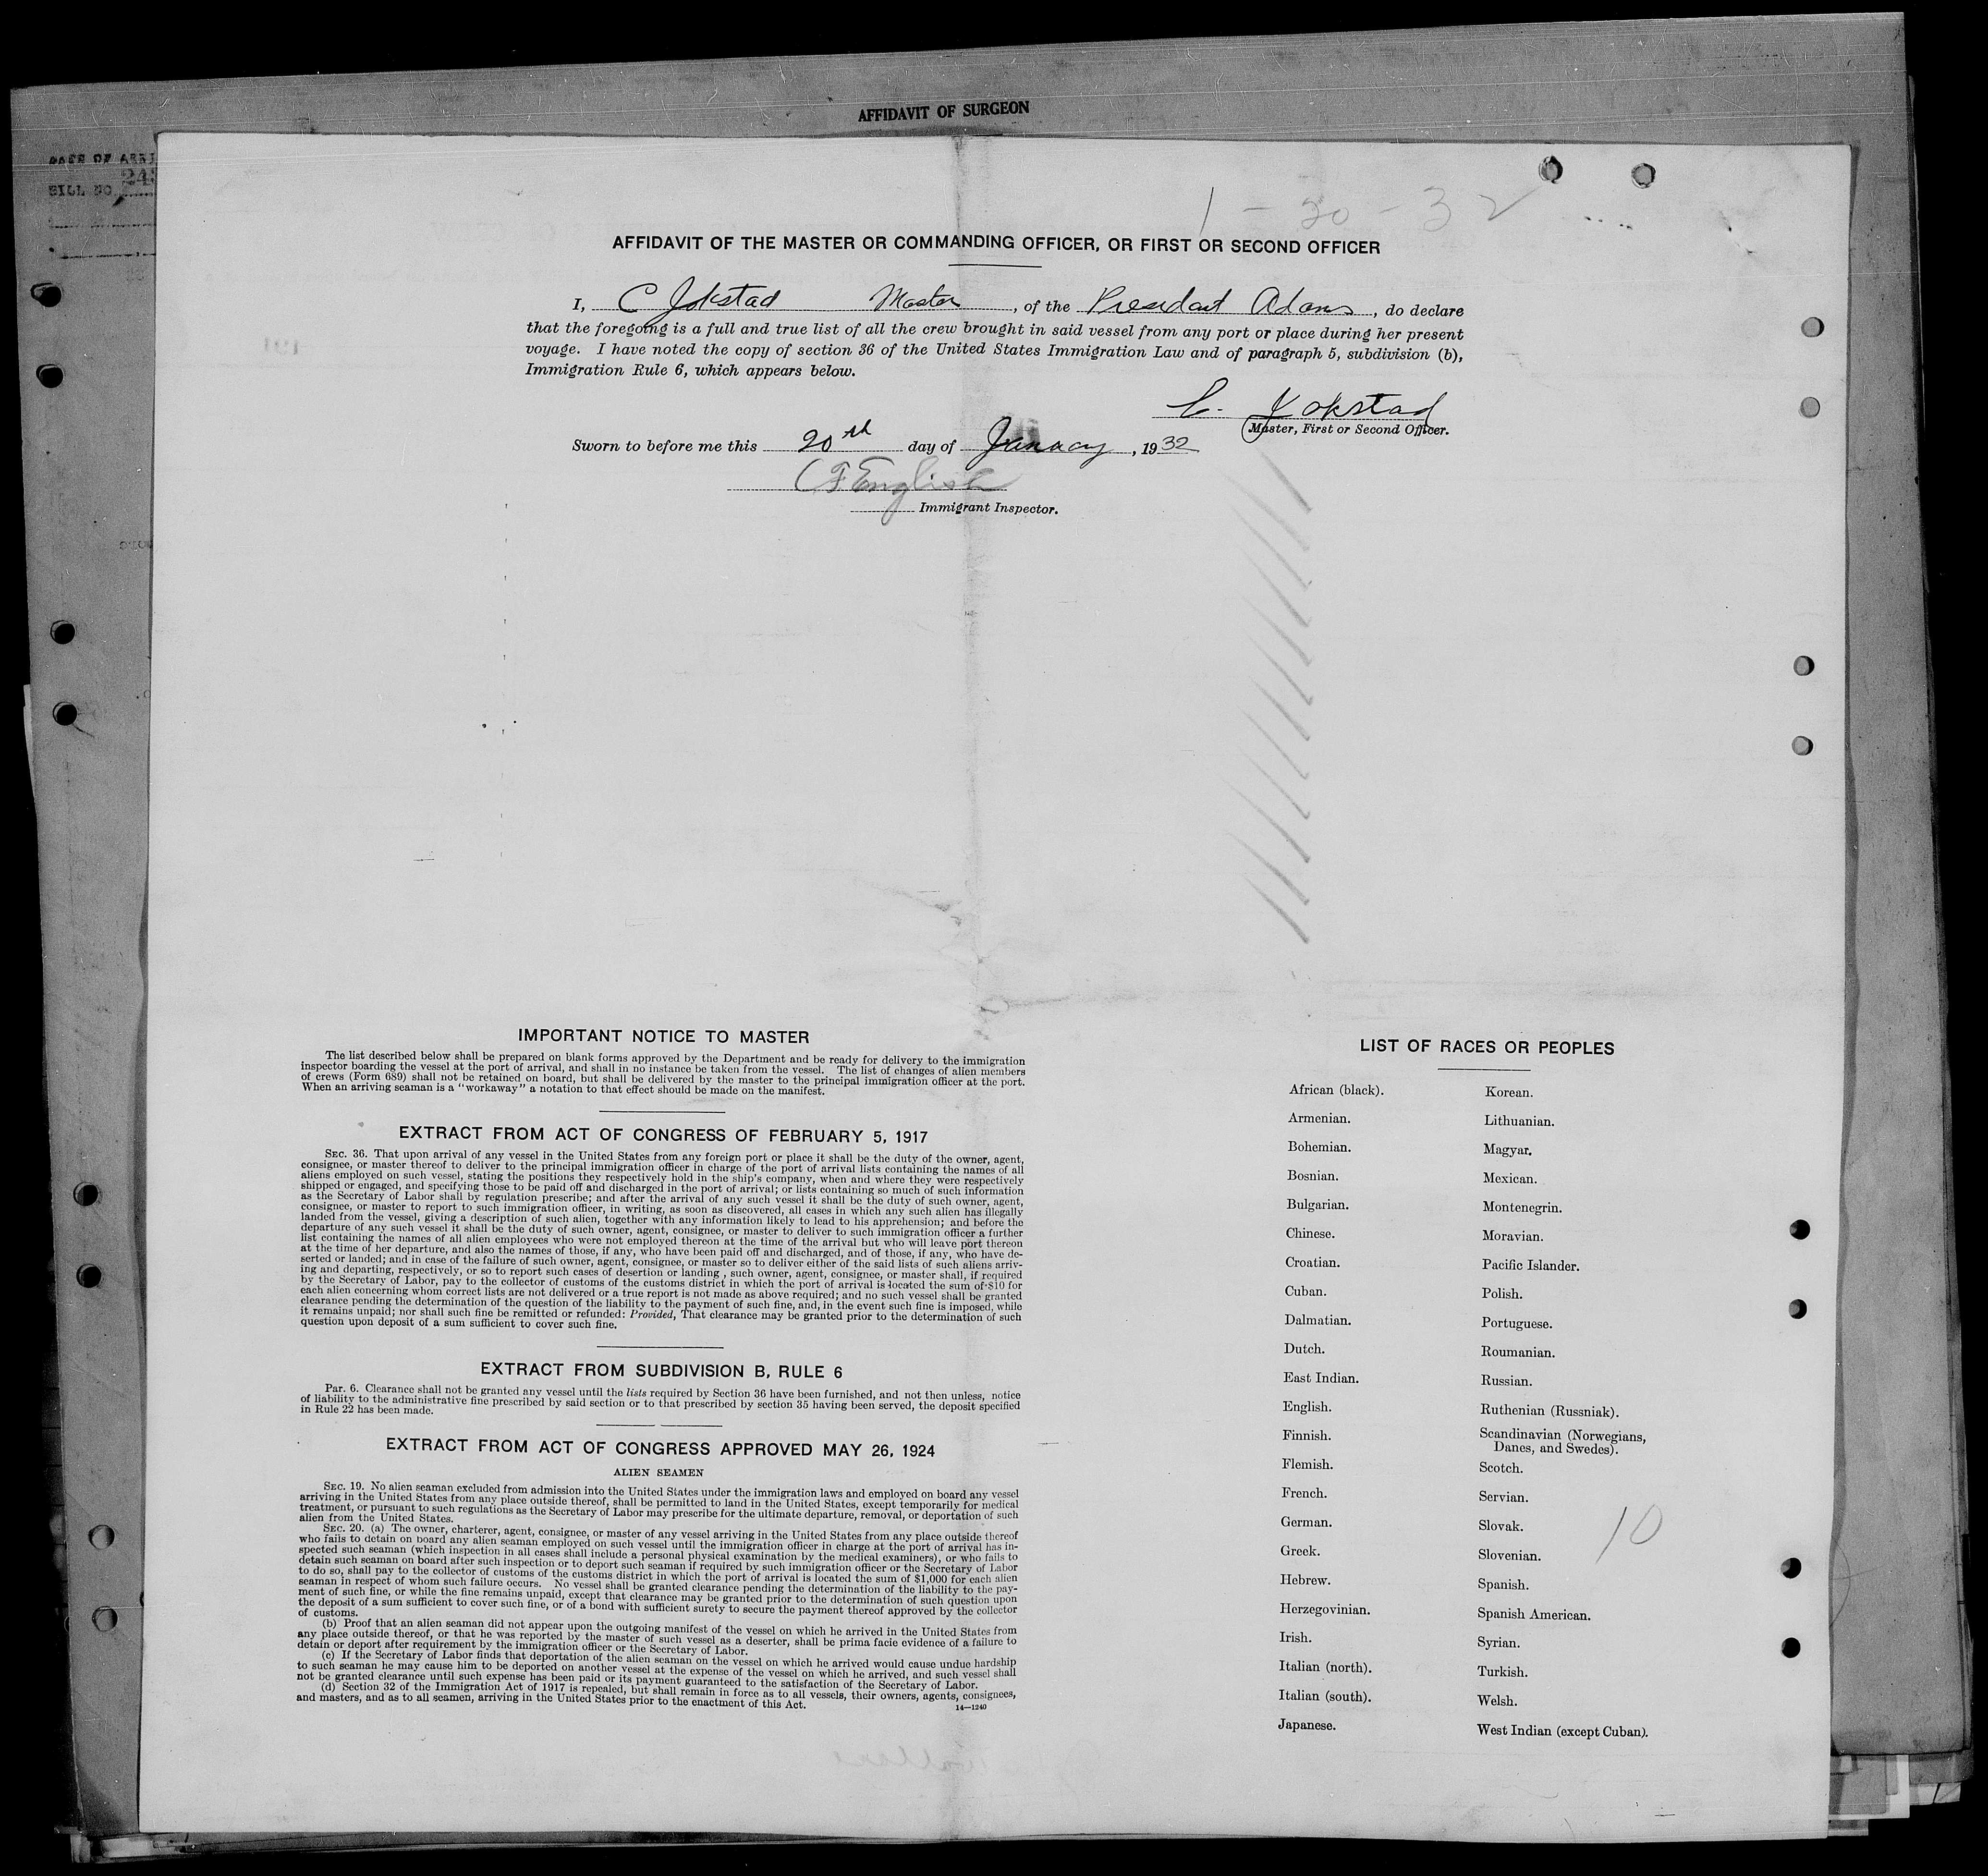 AFFIDAVIT OF SURGEON
BILL NO
1-20-32
AFFIDAVIT OF THE MASTER OR COMMANDING OFFICER, OR FIRST OR SECOND OFFICER
I, C Jokstad Master, of the President Adams, do declare
that the foregoing is a full and true list of all the crew brought in said vessel from any port or place during her present
voyage. I have noted the copy of section 36 of the United States Immigration Law and of paragraph 5, subdivision (b),
Immigration Rule 6, which appears below.
C. Jokstad
Master, First or Second Officer.
Sworn to before me this 20th day of January, 1932
English
Immigrant Inspector.
IMPORTANT NOTICE TO MASTER
The list described below shall be prepared on blank forms approved by the Department and be ready for delivery to the immigration
inspector boarding the vessel at the port of arrival, and shall in no instance be taken from the vessel. The list of changes of alien members
of crews (Form 689) shall not be retained on board, but shall be delivered by the master to the principal immigration officer at the port.
When an arriving seaman is a "workaway" a notation to that effect should be made on the manifest.
EXTRACT FROM ACT OF CONGRESS OF FEBRUARY 5, 1917
SEC. 36. That upon arrival of any vessel in the United States from any foreign port or place it shall be the duty of the owner, agent,
consignee, or master thereof to deliver to the principal immigration officer in charge of the port of arrival lists containing the names of all
aliens employed on such vessel, stating the positions they respectively hold in the ship's company, when and where they were respectively
shipped or engaged, and specifying those to be paid off and discharged in the port of arrival; or lists containing so much of such information
as the Secretary of Labor shall by regulation prescribe; and after the arrival of any such vessel it shall be the duty of such owner, agent,
consignee, or master to report to such immigration officer, in writing, as soon as discovered, all cases in which any such alien has illegally
landed from the vessel, giving a description of such alien, together with any information likely to lead to his apprehension; and before the
departure of any such vessel it shall be the duty of such owner, agent, consignee, or master to deliver to such immigration officer a further
list containing the names of all alien employees who were not employed thereon at the time of the arrival but who will leave port thereon
at the time of her departure, and also the names of those, if any, who have been paid off and discharged, and of those, if any, who have de-
serted or landed; and in case of the failure of such owner, agent, consignee, or master so to deliver either of the said lists of such aliens arriv-
ing and departing, respectively, or so to report such cases of desertion or landing , such owner, agent, consignee, or master shall, if required
by the Secretary of Labor, pay to the collector of customs of the customs district in which the port of arrival is located the sum of $10 for
each alien concerning whom correct lists are not delivered or a true report is not made as above required; and no such vessel shall be granted
clearance pending the determination of the question of the liability to the payment of such fine, and, in the event such fine is imposed, while
it remains unpaid; nor shall such fine be remitted or refunded: Provided, That clearance may be granted prior to the determination of such
question upon deposit of a sum sufficient to cover such fine.
EXTRACT FROM SUBDIVISION B, RULE 6
Par. 6. Clearance shall not be granted any vessel until the lists required by Section 36 have been furnished, and not then unless, notice
of liability to the administrative fine prescribed by said section or to that prescribed by section 35 having been served, the deposit specified
in Rule 22 has been made.
EXTRACT FROM ACT OF CONGRESS APPROVED MAY 26, 1924
ALIEN SEAMEN
SEC. 19. No alien seaman excluded from admission into the United States under the immigration laws and employed on board any vessel
arriving in the United States from any place outside thereof, shall be permitted to land in the United States, except temporarily for medical
treatment, or pursuant to such regulations as the Secretary of Labor may prescribe for the ultimate departure, removal, or deportation of such
alien from the United States.
SEC. 20. (a) The owner, charterer, agent, consignee, or master of any vessel arriving in the United States from any place outside thereof
who fails to detain on board any alien seaman employed on such vessel until the immigration officer in charge at the port of arrival has in-
spected such seaman (which inspection in all cases shall include a personal physical examination by the medical examiners), or who fails to
detain such seaman on board after such inspection or to deport such seaman if required by such immigration officer or the Secretary of Labor
to do so, shall pay to the collector of customs of the customs district in which the port of arrival is located the sum of $1,000 for each alien
seaman in respect of whom such failure occurs. No vessel shall be granted clearance pending the determination of the liability to the pay-
ment of such fine, or while the fine remains unpaid, except that clearance may be granted prior to the determination of such question upon
the deposit of a sum sufficient to cover such fine, or of a bond with sufficient surety to secure the payment thereof approved by the collector
of customs.
(b) Proof that an alien seaman did not appear upon the outgoing manifest of the vessel on which he arrived in the United States from
any place outside thereof, or that he was reported by the master of such vessel as a deserter, shall be prima facie evidence of a failure to
detain or deport after requirement by the immigration officer or the Secretary of Labor.
(c) If the Secretary of Labor finds that deportation of the alien seaman on the vessel on which he arrived would cause undue hardship
to such seaman he may cause him to be deported on another vessel at the expense of the vessel on which he arrived, and such vessel shall
not be granted clearance until such expense has been paid or its payment guaranteed to the satisfaction of the Secretary of Labor.
(d) Section 32 of the Immigration Act of 1917 is repealed, but shall remain in force as to all vessels, their owners, agents, consignees,
and masters, and as to all seamen, arriving in the United States prior to the enactment of this Act.
14—1240
LIST OF RACES OR PEOPLES
African (black).
Armenian.
Bohemian.
Bosnian.
Bulgarian.
Chinese.
Croatian.
Cuban.
Dalmatian.
Dutch.
East Indian.
English.
Finnish.
Flemish.
French.
German.
Greek.
Hebrew.
Herzegovinian.
Irish.
Italian (north).
Italian (south).
Japanese.
Korean.
Lithuanian.
Magyar.
Mexican.
Montenegrin.
Moravian.
Pacific Islander.
Polish.
Portuguese.
Roumanian.
Russian.
Ruthenian (Russniak).
Scandinavian (Norwegians,
Danes, and Swedes).
Scotch.
Servian.
Slovak.
Slovenian.
Spanish.
Spanish American.
Syrian.
Turkish.
Welsh.
West Indian (except Cuban).
10